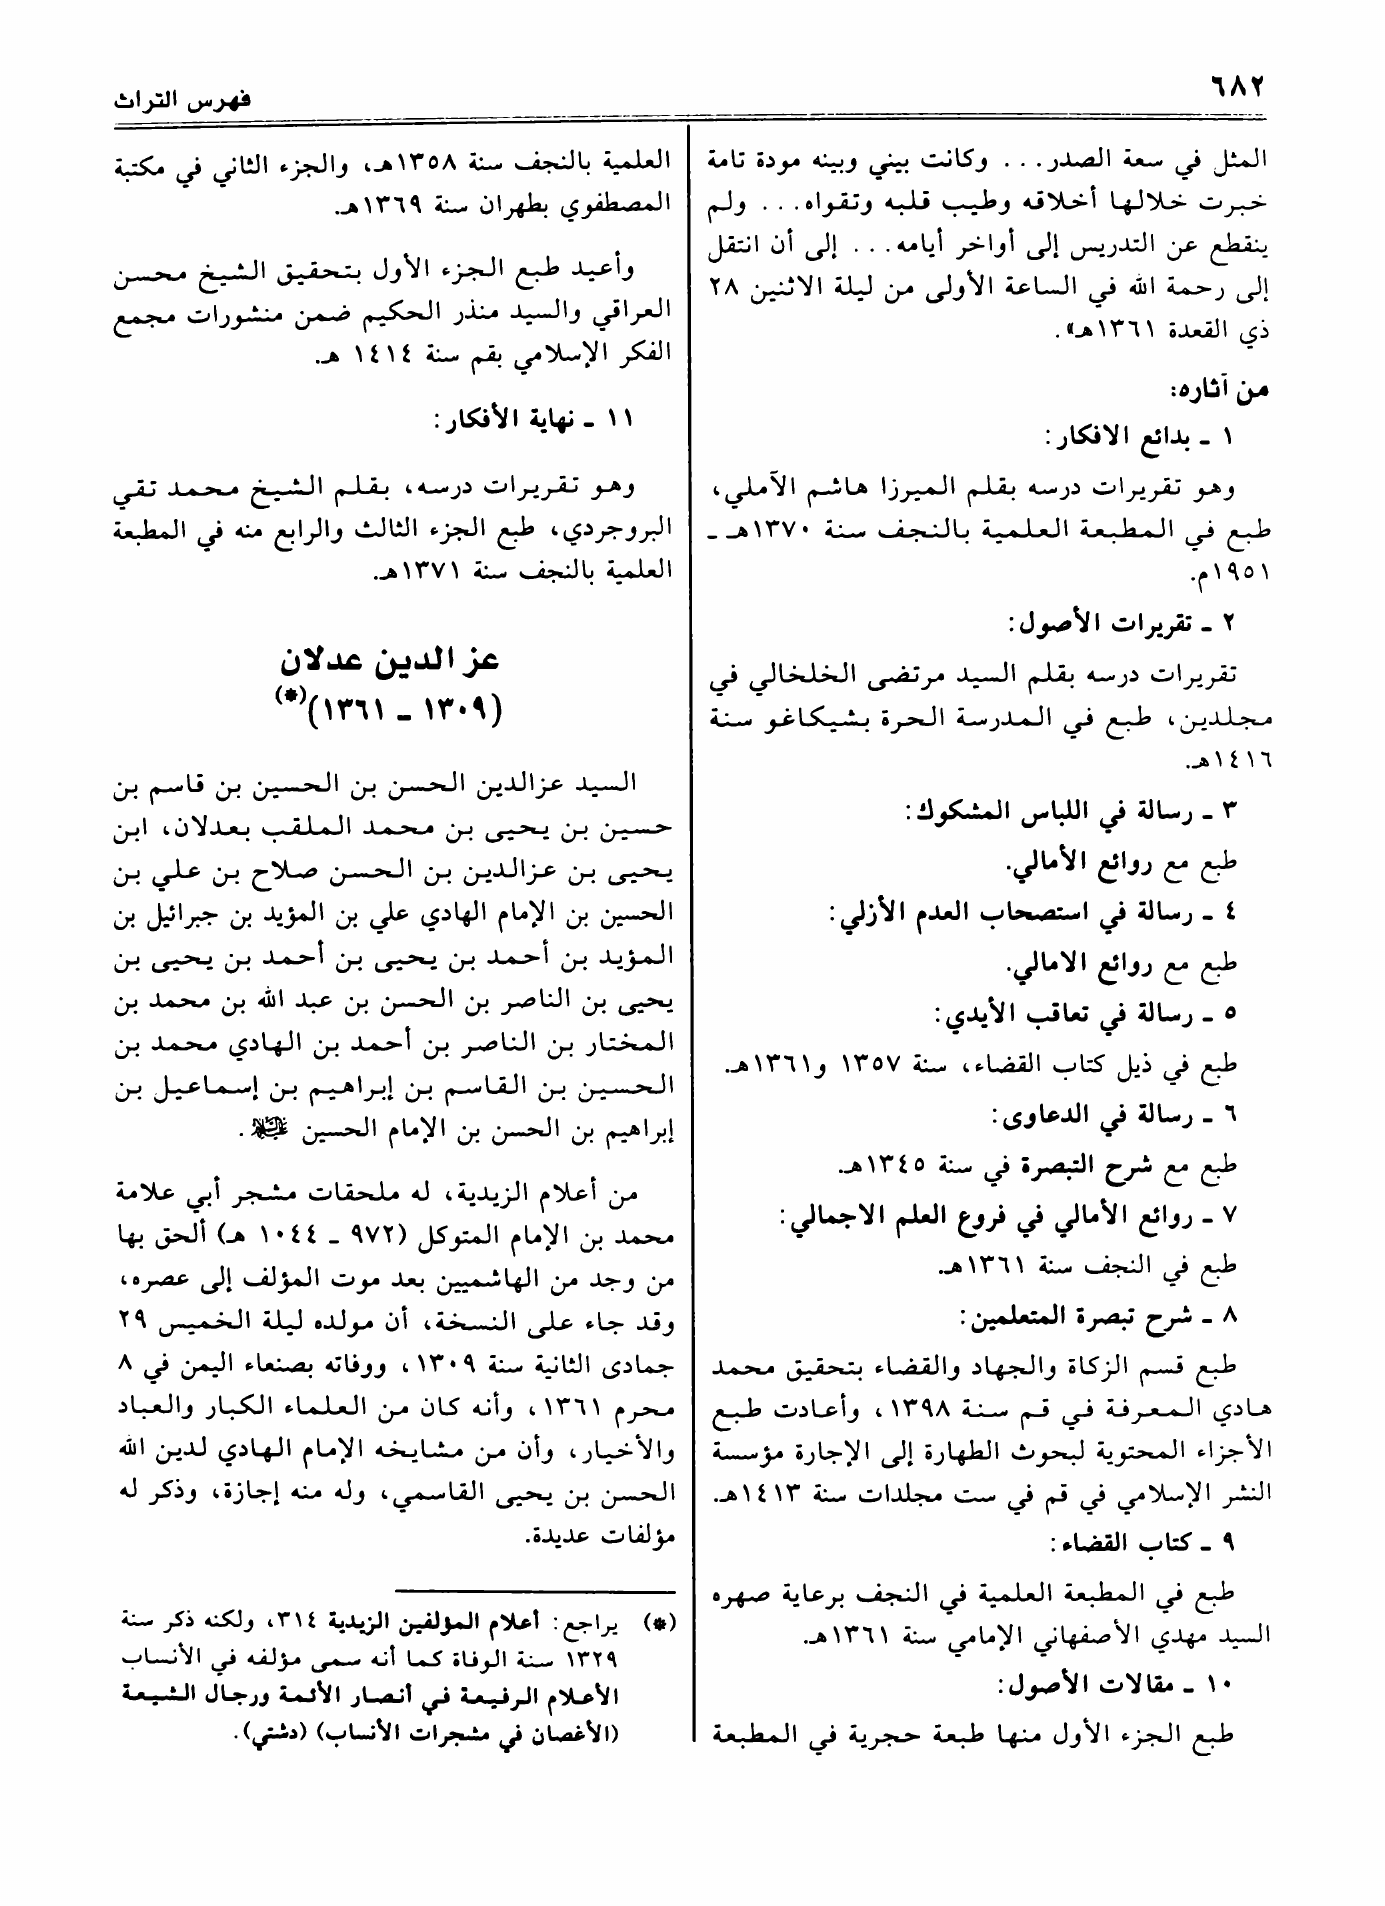 ٦٨٢
فهرس التراث
المثل في سعة الصدر... وكانت بيني وبينه مودة تامة
خبرت خلالها أخلاقه وطيب قلبه وتقواه... ولم
ينقطع عن التدريس إلى أواخر أيامه... إلى أن انتقل
إلى رحمة الله في الساعة الأولى من ليلة الاثنين ٢٨
ذي القعدة ١٣٦١هـ».
من آثاره:
١ ـ بدائع الافكار:
وهو تقريرات درسه بقلم الميرزا هاشم الآملي،
طبع في المطبعة العلمية بالنجف سنة ١٣٧٠هـ ـ
١٩٥١م.
٢ ـ تقريرات الأصول:
تقريرات درسه بقلم السيد مرتضى الخلخالي في
مجلدين، طبع في المدرسة الحرة بشيكاغو سنة
١٤١٦هـ.
٣ ـ رسالة في اللباس المشكوك:
طبع مع روائع الأمالي.
٤ ـ رسالة في استصحاب العدم الأزلي:
طبع مع روائع الامالي.
٥ ـ رسالة في تعاقب الأيدي:
طبع في ذيل كتاب القضاء، سنة ١٣٥٧ و١٣٦١هـ.
٦ ـ رسالة في الدعاوى:
طبع مع شرح التبصرة في سنة ١٣٤٥هـ.
٧ ـ روائع الأمالي في فروع العلم الاجمالي:
طبع في النجف سنة ١٣٦١هـ.
٨ ـ شرح تبصرة المتعلمين:
طبع قسم الزكاة والجهاد والقضاء بتحقيق محمد
هادي المعرفة في قم سنة ١٣٩٨، وأعادت طبع
الأجزاء المحتوية لبحوث الطهارة إلى الإجارة مؤسسة
النشر الإسلامي في قم في ست مجلدات سنة ١٤١٣هـ.
٩ ـ كتاب القضاء:
طبع في المطبعة العلمية في النجف برعاية صهره
السيد مهدي الأصفهاني الإمامي سنة ١٣٦١هـ.
١٠ ـ مقالات الأصول:
طبع الجزء الأول منها طبعة حجرية في المطبعة
العلمية بالنجف سنة ١٣٥٨هـ، والجزء الثاني في مكتبة
المصطفوي بطهران سنة ١٣٦٩هـ.
وأعيد طبع الجزء الأول بتحقيق الشيخ محسن
العراقي والسيد منذر الحكيم ضمن منشورات مجمع
الفكر الإسلامي بقم سنة ١٤١٤ هـ.
١١ ـ نهاية الأفكار:
وهو تقريرات درسه، بقلم الشيخ محمد تقي
البروجردي، طبع الجزء الثالث والرابع منه في المطبعة
العلمية بالنجف سنة ١٣٧١هـ.
عز الدين عدلان
(١٣٠٩ ـ ١٣٦١)(*)
السيد عزالدين الحسن بن الحسين بن قاسم بن
حسين بن يحيى بن محمد الملقب بعدلان، ابن
يحيى بن عزالدين بن الحسن صلاح بن علي بن
الحسين بن الإمام الهادي علي بن المؤيد بن جبرائيل بن
المؤيد بن أحمد بن يحيى بن أحمد بن يحيى بن
يحيى بن الناصر بن الحسن بن عبد الله بن محمد بن
المختار بن الناصر بن أحمد بن الهادي محمد بن
الحسين بن القاسم بن إبراهيم بن إسماعيل بن
إبراهيم بن الحسن بن الإمام الحسين .
من أعلام الزيدية، له ملحقات مشجر أبي علامة
محمد بن الإمام المتوكل (٩٧٢ ـ ١٠٤٤ هـ) ألحق بها
من وجد من الهاشميين بعد موت المؤلف إلى عصره،
وقد جاء على النسخة، أن مولده ليلة الخميس ٢٩
جمادى الثانية سنة ١٣٠٩، ووفاته بصنعاء اليمن في ٨
محرم ١٣٦١، وأنه كان من العلماء الكبار والعباد
والأخيار، وأن من مشايخه الإمام الهادي لدين الله
الحسن بن يحيى القاسمي، وله منه إجازة، وذكر له
مؤلفات عديدة.
(*) يراجع: أعلام المؤلفين الزيدية ٣١٤، ولكنه ذكر سنة
١٣٢٩ سنة الوفاة كما أنه سمى مؤلفه في الأنساب
الأعلام الرفيعة في أنصار الأئمة ورجال الشيعة
(الأغصان في مشجرات الأنساب) (دشتي).